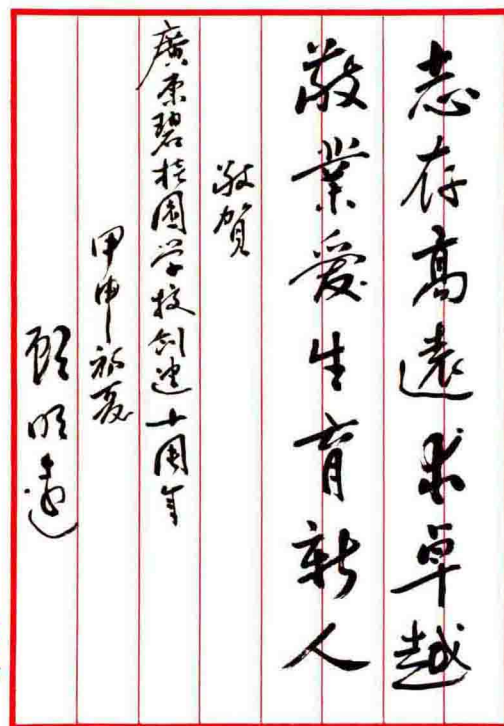 志存高遠求卓越
敬業愛生育新人
敬賀
廣東碧桂園学校創建十周年
甲申初夏
顧明遠